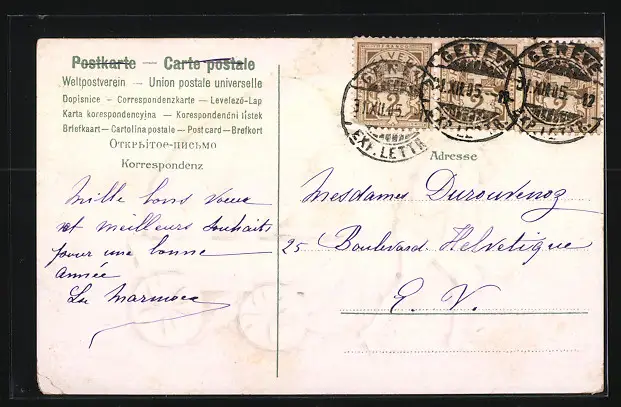 Postkarte — Carte postale
Weltpostverein — Union postale universelle
Dopisnice - Correspondenzkarte — Levelező-Lap
Karta korespondencyjna — Korespondenčni listek
Briefkaart — Cartolina postale — Post card — Brefkort
Открытое-письмо
Korrespondenz
Mille bons vœux
et meilleurs souhaits
pour une bonne
année
La
GENÈVE
31.XII.05
EXP. LETTR.
GENÈVE
1.XII.05
EXP. LETTR.
GENÈVE
31.XII.05 12
EXP. LETTR.
2
Adresse
Mesdames Durouvenoz
25 Boulevard Helvetique
E. V.